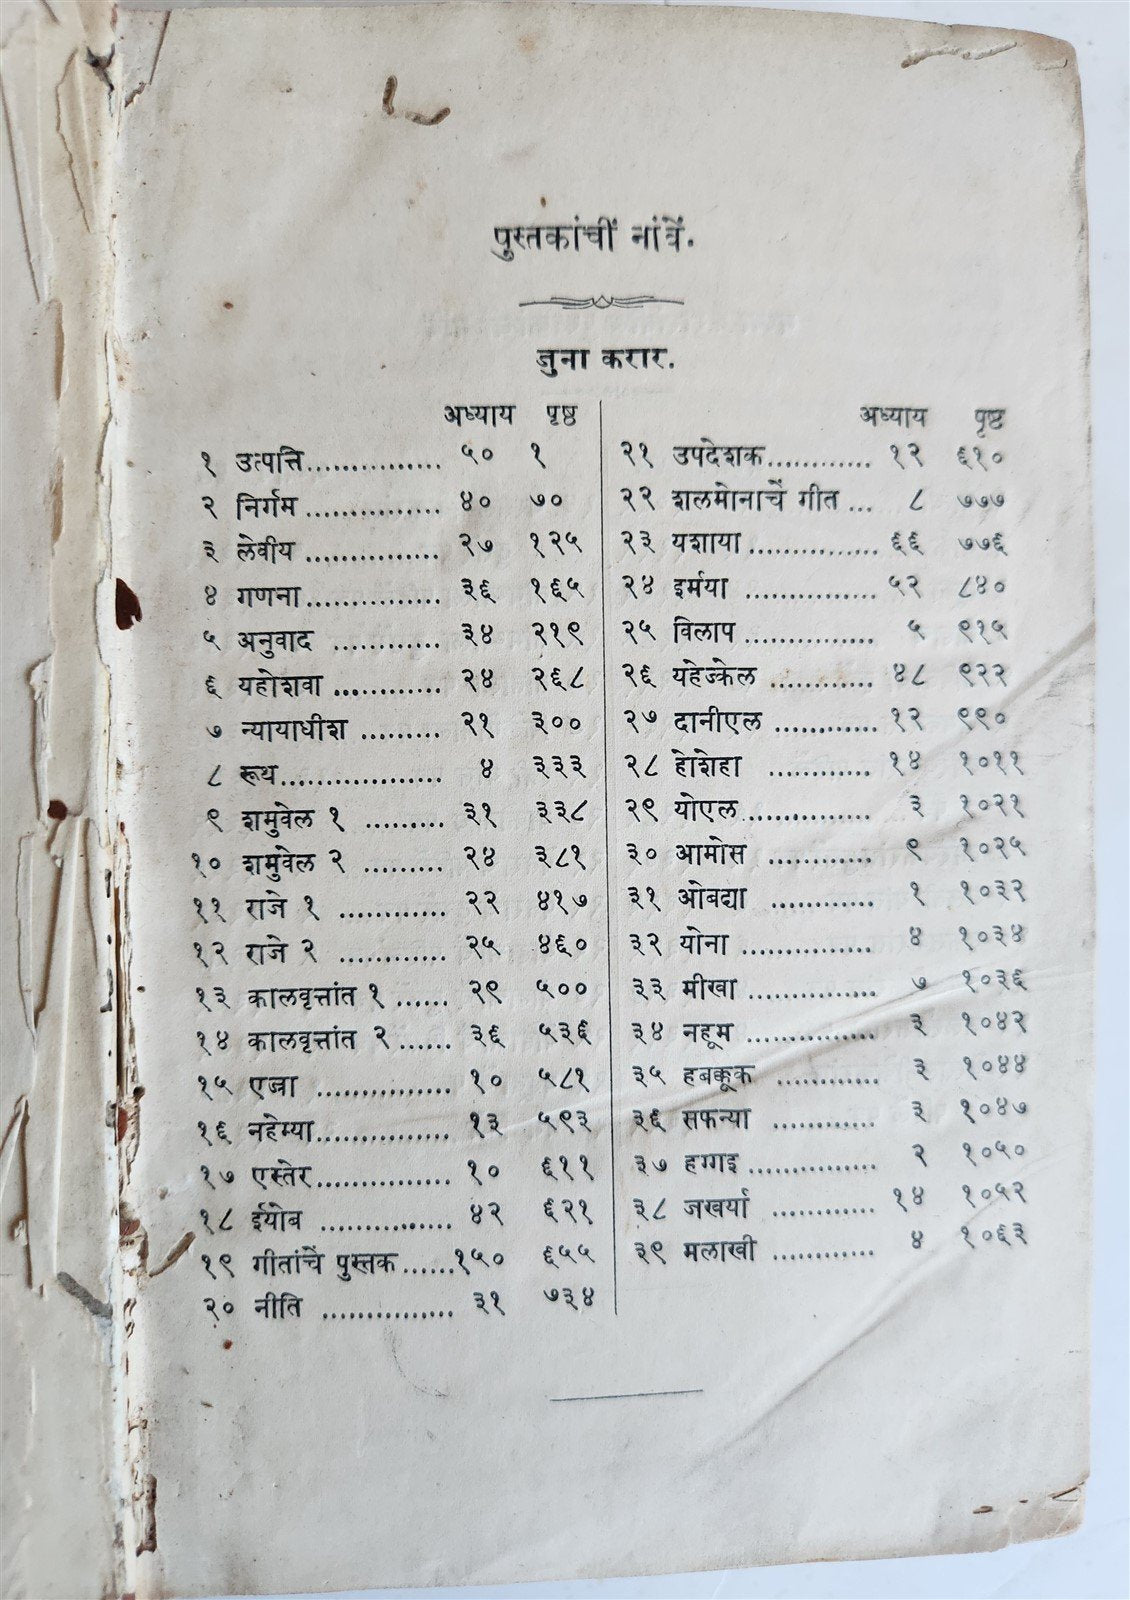 पुस्तकांचीं नांवें.
जुना करार.
अध्याय पृष्ठ
१ उत्पत्ति............... ५० १
२ निर्गम ............... ४० ७०
३ लेवीय ............... २७ १२५
४ गणना............... ३६ १६५
५ अनुवाद ............ ३४ २१९
६ यहोशवा ............ २४ २६८
७ न्यायाधीश ......... २१ ३००
८ रूथ.................. ४ ३३३
९ शमुवेल १ ......... ३१ ३३८
१० शमुवेल २ ......... २४ ३८१
११ राजे १ ............ २२ ४१७
१२ राजे २ ............ २५ ४६०
१३ कालवृत्तांत १ ...... २९ ५००
१४ कालवृत्तांत २ ...... ३६ ५३६
१५ एज्रा ............... १० ५८१
१६ नहेम्या............... १३ ५९३
१७ एस्तेर............... १० ६११
१८ ईयोब ............... ४२ ६२१
१९ गीतांचें पुस्तक......१५० ६५५
२० नीति ............... ३१ ७३४
अध्याय पृष्ठ
२१ उपदेशक............ १२ ६१०
२२ शलमोनाचें गीत ... ८ ७७७
२३ यशाया ............... ६६ ७७६
२४ इर्मया ............... ५२ ८४०
२५ विलाप ............... ५ ९१५
२६ यहेज्केल ............ ४८ ९२२
२७ दानीएल ............ १२ ९९०
२८ होशेहा ............ १४ १०११
२९ योएल............... ३ १०२१
३० आमोस ............ ९ १०२५
३१ ओबद्या ............ १ १०३२
३२ योना ............... ४ १०३४
३३ मीखा ............... ७ १०३६
३४ नहूम ............... ३ १०४२
३५ हबक्कूक ............ ३ १०४४
३६ सफन्या ............ ३ १०४७
३७ हग्गइ ............... २ १०५०
३८ जखर्या ............ १४ १०५२
३९ मलाखी ............ ४ १०६३